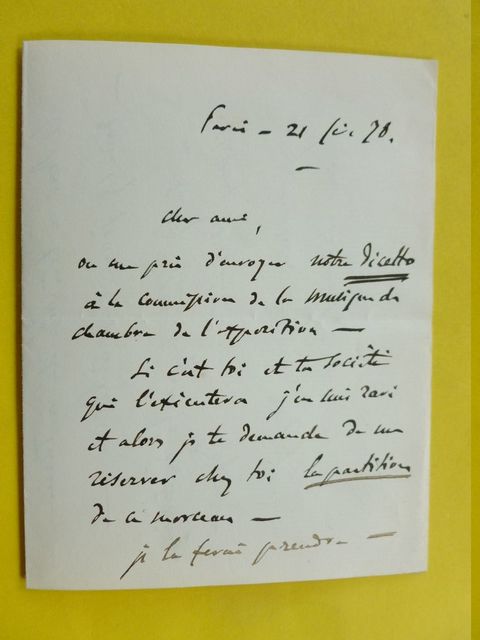 Paris – 21 fév. 78.
cher ami,
on me prie d'envoyer notre Dicetto
à la Commission de la musique de
chambre de l'Exposition —
Si c'est toi et ta société
qui l'exécutera j'en suis ravi
et alors je te demande de me
réserver chez toi la partition
de ce morceau —
je la ferai prendre —